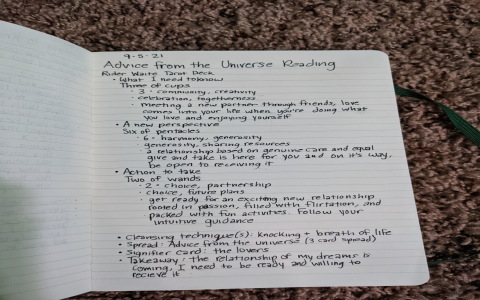 9-5-21
Advice from the Universe Reading
Rider Waite Tarot Deck
• What I need to know
Three of cups
• 3 = community, creativity
• celebration, togetherness
• meeting a new partner through friends, love
comes into your life when you're doing what
you love and enjoying yourself
• A new perspective
Six of pentacles
• 6 = harmony, generosity
• generosity, sharing resources
• a relationship based on genuine care and equal
give and take is here for you and on it's way,
be open to receiving it
• Action to take
Two of wands
• 2 = choice, partnership
• choice, future plans
• get ready for an exciting new relationship
rooted in passion, filled with flirtation, and
packed with fun activities. Follow your
intuitive guidance
• Cleansing technique(s): knocking + breath of life
• Spread: Advice from the universe (3 card spread)
• Signifier card: the lovers
• Takeaway: the relationship of my dreams is
coming, I need to be ready and willing to
recieve it